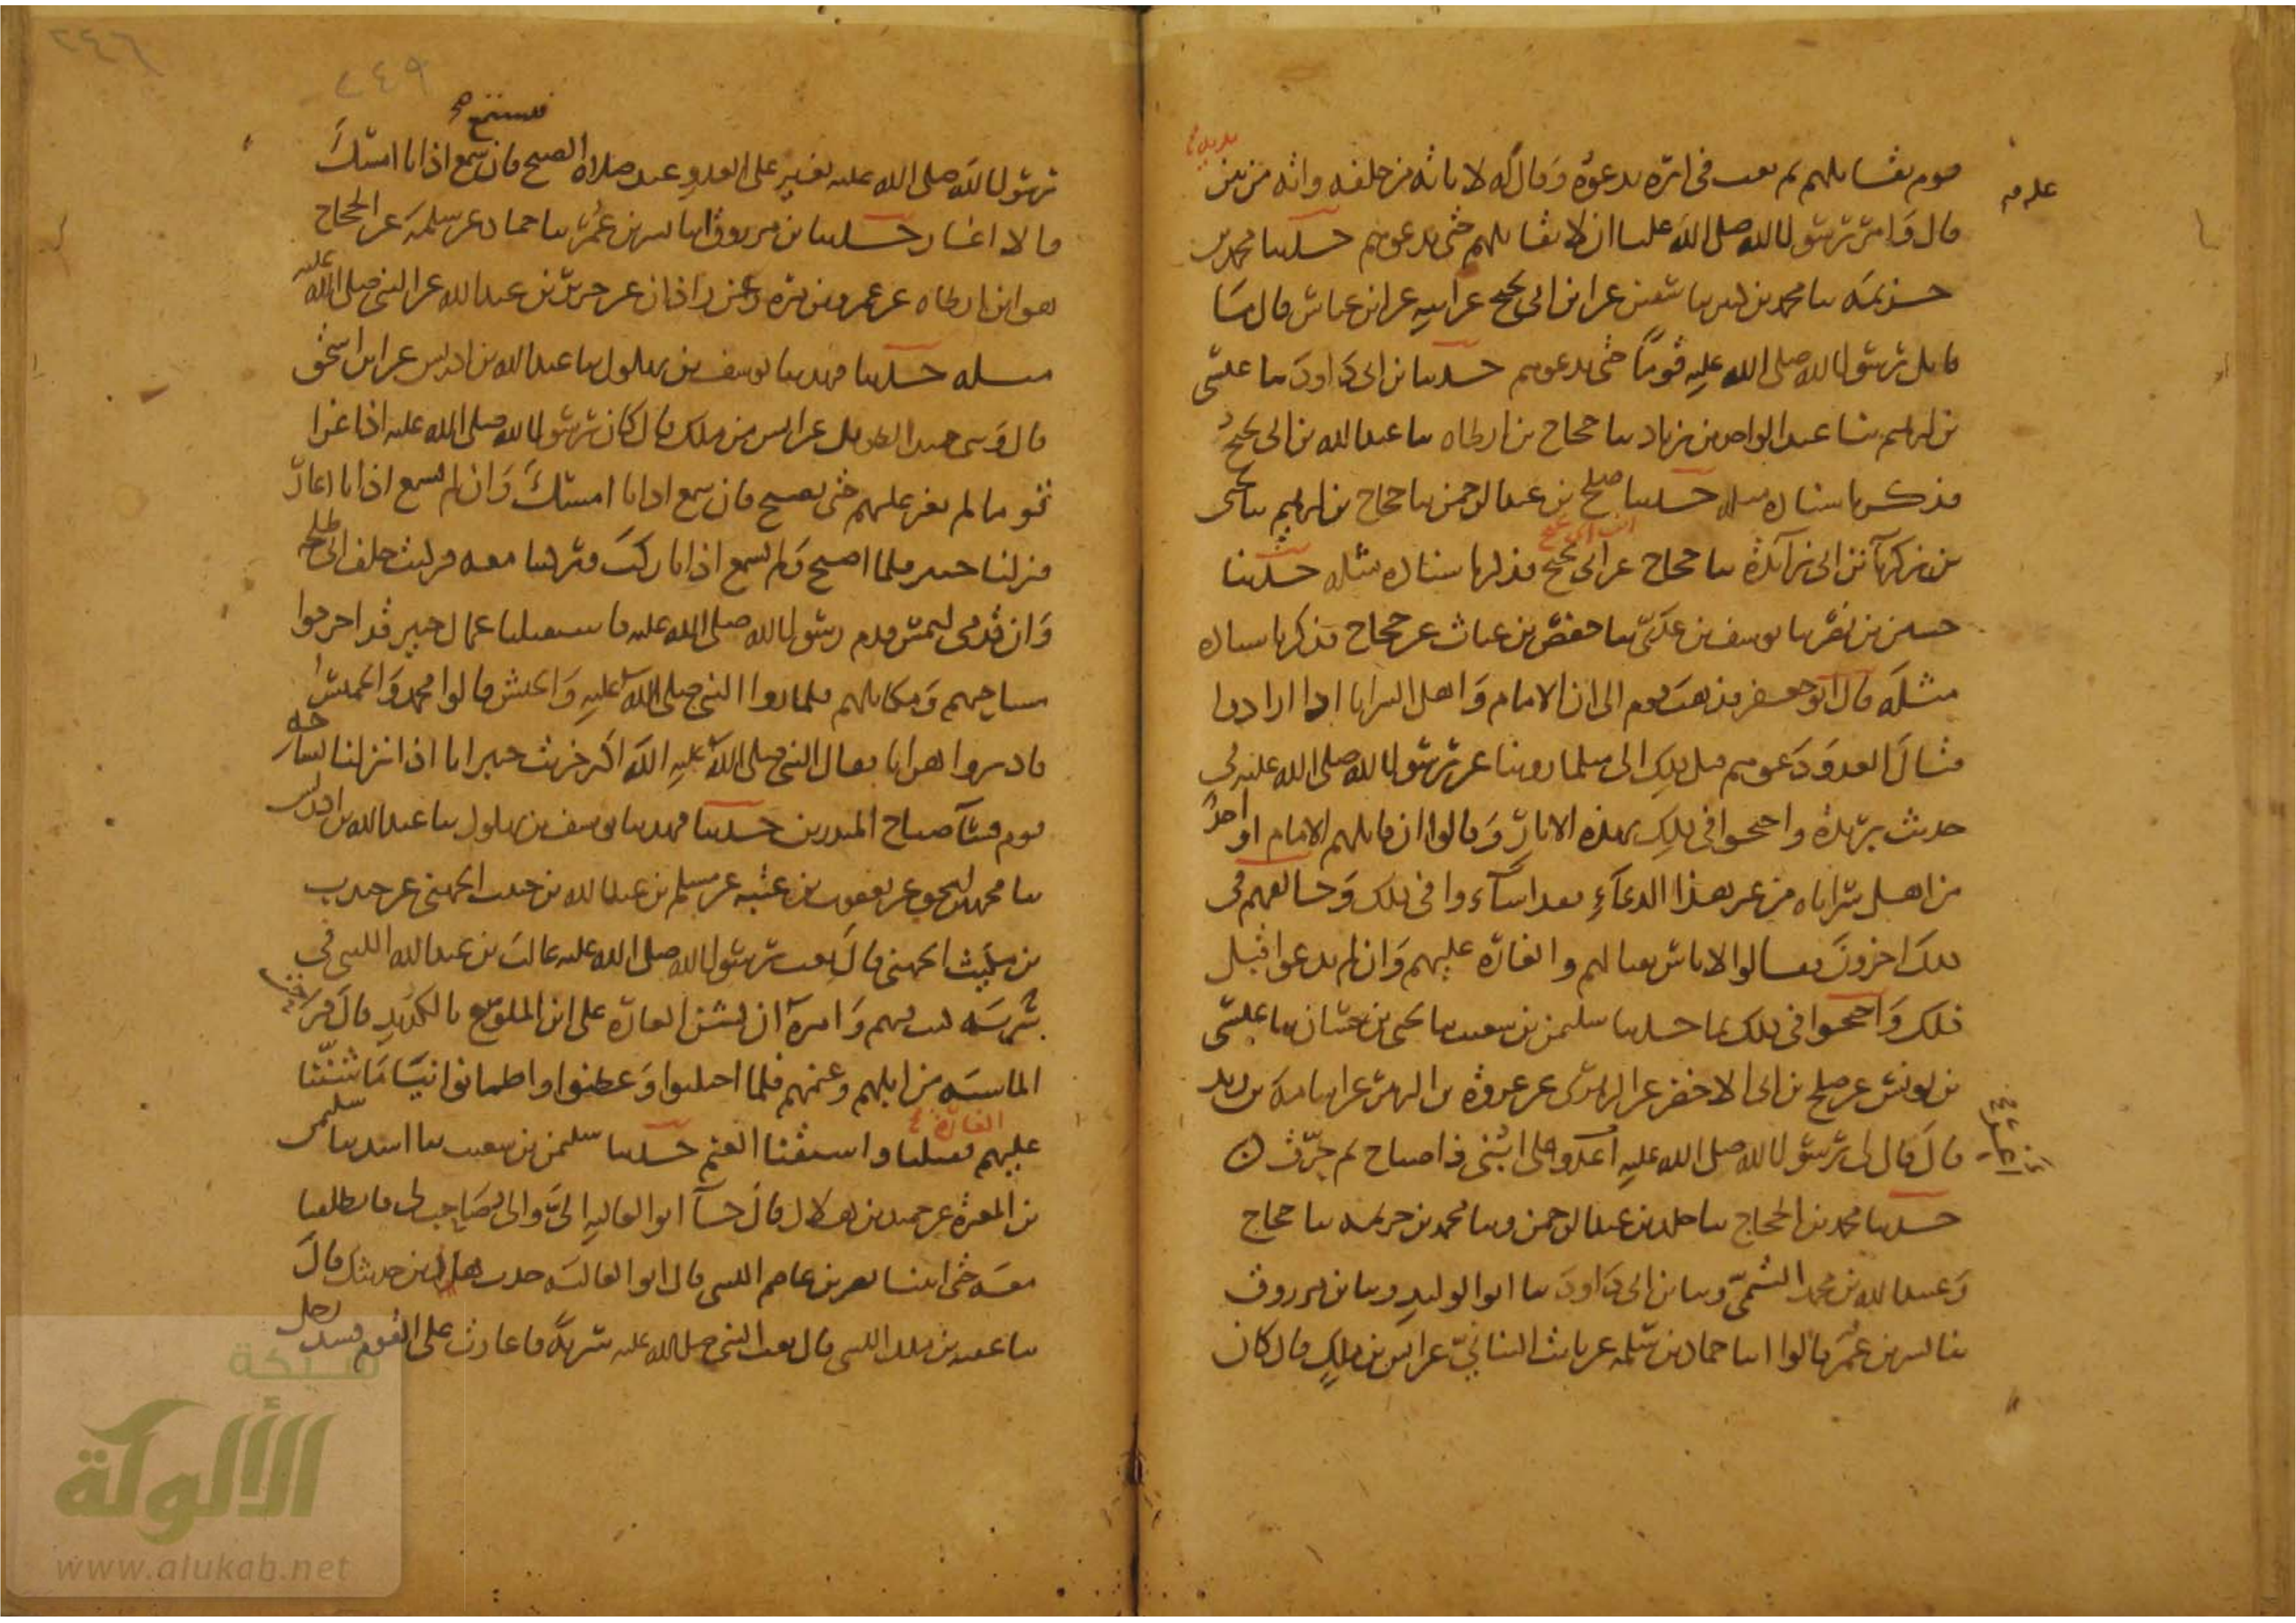 قوم يقاتلهم ثم بعث في اثره يدعوه وقال له لا تاته من خلفه واته من بين
يديه
علي
قال وامر رسول الله صلى الله عليا ان لا يقاتلهم حتى يدعوهم حدثنا محمد بن
خزيمة ثنا محمد بن كثير ثنا سفين عن ابن ابي نجيح عن ابيه عن ابن عباس قال ما
قاتل رسول الله صلى الله عليه قوما حتى يدعوهم حدثنا بن ابي داود ثنا عيسى
بن ابرهيم ثنا عبد الواحد بن زياد ثنا حجاج بن ارطاه ثنا عبد الله بن ابي نجيح
فذكر باسناده مثله حدثنا صلح بن عبد الرحمن ثنا حجاج بن ابرهيم ثنا يحيى
بن زكريا بن ابي زائدة ثنا حجاج عن ابي نجيح فذكر باسناده مثله حدثنا
ابن ابي نجيح
حسين بن نصر ثنا يوسف بن عدي ثنا حفص بن غياث عن حجاج فذكر باسناده
مثله قال ابو جعفر فذهب قوم الى ان الامام واهل السرايا اذا ارادوا
قتال العدو دعوهم قبل ذلك الى مثل ما روينا عن رسول الله صلى الله عليه في
حديث بريدة واحتجوا في ذلك بهذه الاثار وقالوا ان قاتلهم الامام او احد
من اهل سراياه من غير هذا الدعاء فقد اساءوا في ذلك وخالفهم في
ذلك اخرون فقالوا لا باس بقتالهم والغارة عليهم وان لم يدعوا قبل
ذلك واحتجوا في ذلك بما حدثنا سليمن بن شعيب ثنا يحيى بن حسان ثنا عيسى
بن يونس عن صلح بن ابي الاخضر عن الزهري عن عروة بن الزبير عن اسامة بن زيد
قال قال لي رسول الله صلى الله عليه اغد على ابنى ذا صباح ثم حرق
حدثنا محمد بن الحجاج ثنا خلد بن عبد الرحمن وثنا محمد بن خزيمه ثنا حجاج
وعبد الله بن محمد التيمي وثنا بن ابي داود ثنا ابو الوليد وثنا بن مرزوق
ثنا بشر بن عمر قالوا انبا حماد بن سلمه عن ثابت البناني عن انس بن ملك قال كان
٢٤٦
٢٤٩
فيستمع
رسول الله صلى الله عليه يغير على العدو عند صلاة الصبح فان سمع اذانا امسك
والا اغار حدثنا بن مرزوق ثنا بشر بن عمر ثنا حماد عن سلمة عن الحجاج
هو ابن ارطاه عن عمرو بن مرة عن زاذان عن جرير بن عبد الله عن النبي صلى الله عليه
مثله حدثنا فهد ثنا يوسف بن بهلول ثنا عبد الله بن ادريس عن ابن اسحق
قال وثنى حميد الطويل عن انس بن ملك قال كان رسول الله صلى الله عليه اذا غزا
قوما لم يغر عليهم حتى يصبح فان سمع اذانا امسك وان لم يسمع اذانا اغار
فنزلنا خيبر فلما اصبح ولم يسمع اذانا ركب وركبنا معه فركبت خلف ابي طلحة
وان قدمي لتمس قدم رسول الله صلى الله عليه فاستقبلنا عمال خيبر قد اخرجوا
مساحيهم ومكاتلهم فلما راوا النبي صلى الله عليه والجيش قالوا محمد والخميس
فادبروا هرابا فقال النبي صلى الله عليه الله اكبر خربت خيبر انا اذا نزلنا بساحه
قوم فساء صباح المنذرين حدثنا فهد ثنا يوسف بن بهلول ثنا عبد الله بن ادريس
ثنا محمد بن اسحق عن يعقوب بن عتبه عن مسلم بن عبد الله بن خبيب الجهني عن جندب
بن مكيث الجهني قال بعث رسول الله صلى الله عليه غالب بن عبد الله الليثي في
سرية كنت فيهم وامره ان يشن الغارة على ابن الملوح بالكديد قال فراحت
الماشية من ابلهم وغنمهم فلما احتلبوا وعطنوا واطمانوا نياما شننا
الغارة
عليهم فقتلنا واستقنا الغنم حدثنا سليمن بن شعيب ثنا اسد ثنا سليمن
بن المغيرة عن حميد بن هلال قال جاء ابو العاليه الي والى صاحب لي فانطلقنا
معه حتى اتينا نصر بن عاصم الليثي قال ابو العالية حدث هذين حديثك قال
ثنا عقبة بن ملك الليثي قال بعث النبي صلى الله عليه سرية فاغارت على القوم فشذ رجل
شبكة
الألوكة
www.alukah.net